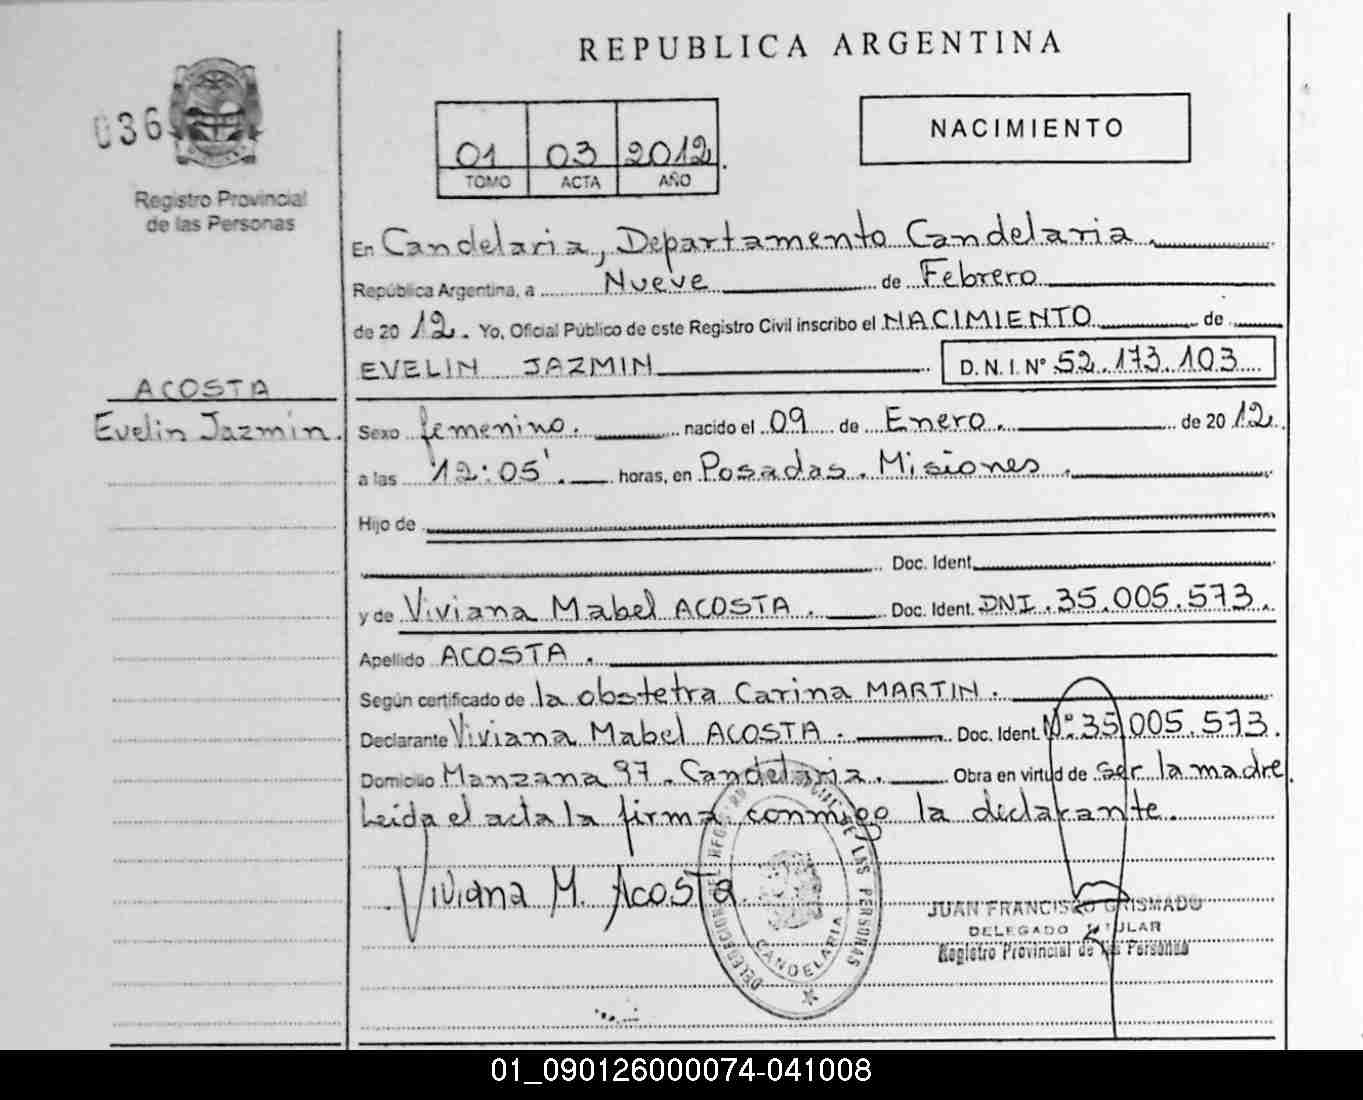 REPUBLICA ARGENTINA
036
Registro Provincial
de las Personas
01 03 2012
TOMO ACTA AÑO
NACIMIENTO
En Candelaria, Departamento Candelaria.
República Argentina, a Nueve de Febrero
de 2012. Yo, Oficial Público de este Registro Civil inscribo el NACIMIENTO de
EVELIN JAZMIN D.N.I. Nº 52.173.103
ACOSTA
Evelin Jazmin.
Sexo femenino. nacido el 09 de Enero. de 2012.
a las 12:05'. horas, en Posadas. Misiones.
Hijo de
Doc. Ident.
y de Viviana Mabel ACOSTA. Doc. Ident. DNI. 35.005.573.
Apellido ACOSTA.
Según certificado de la obstetra Carina MARTIN.
Declarante Viviana Mabel ACOSTA. Doc. Ident. Nº: 35.005.573.
Domicilio Manzana 97. Candelaria. Obra en virtud de ser la madre.
Leída el acta la firma conmigo la declarante.
Viviana M. Acosta
DELEGACION DEL REGISTRO PROVINCIAL DE LAS PERSONAS
CANDELARIA
JUAN FRANCISCO GRISMADO
DELEGADO TITULAR
Registro Provincial de las Personas
01_090126000074-041008